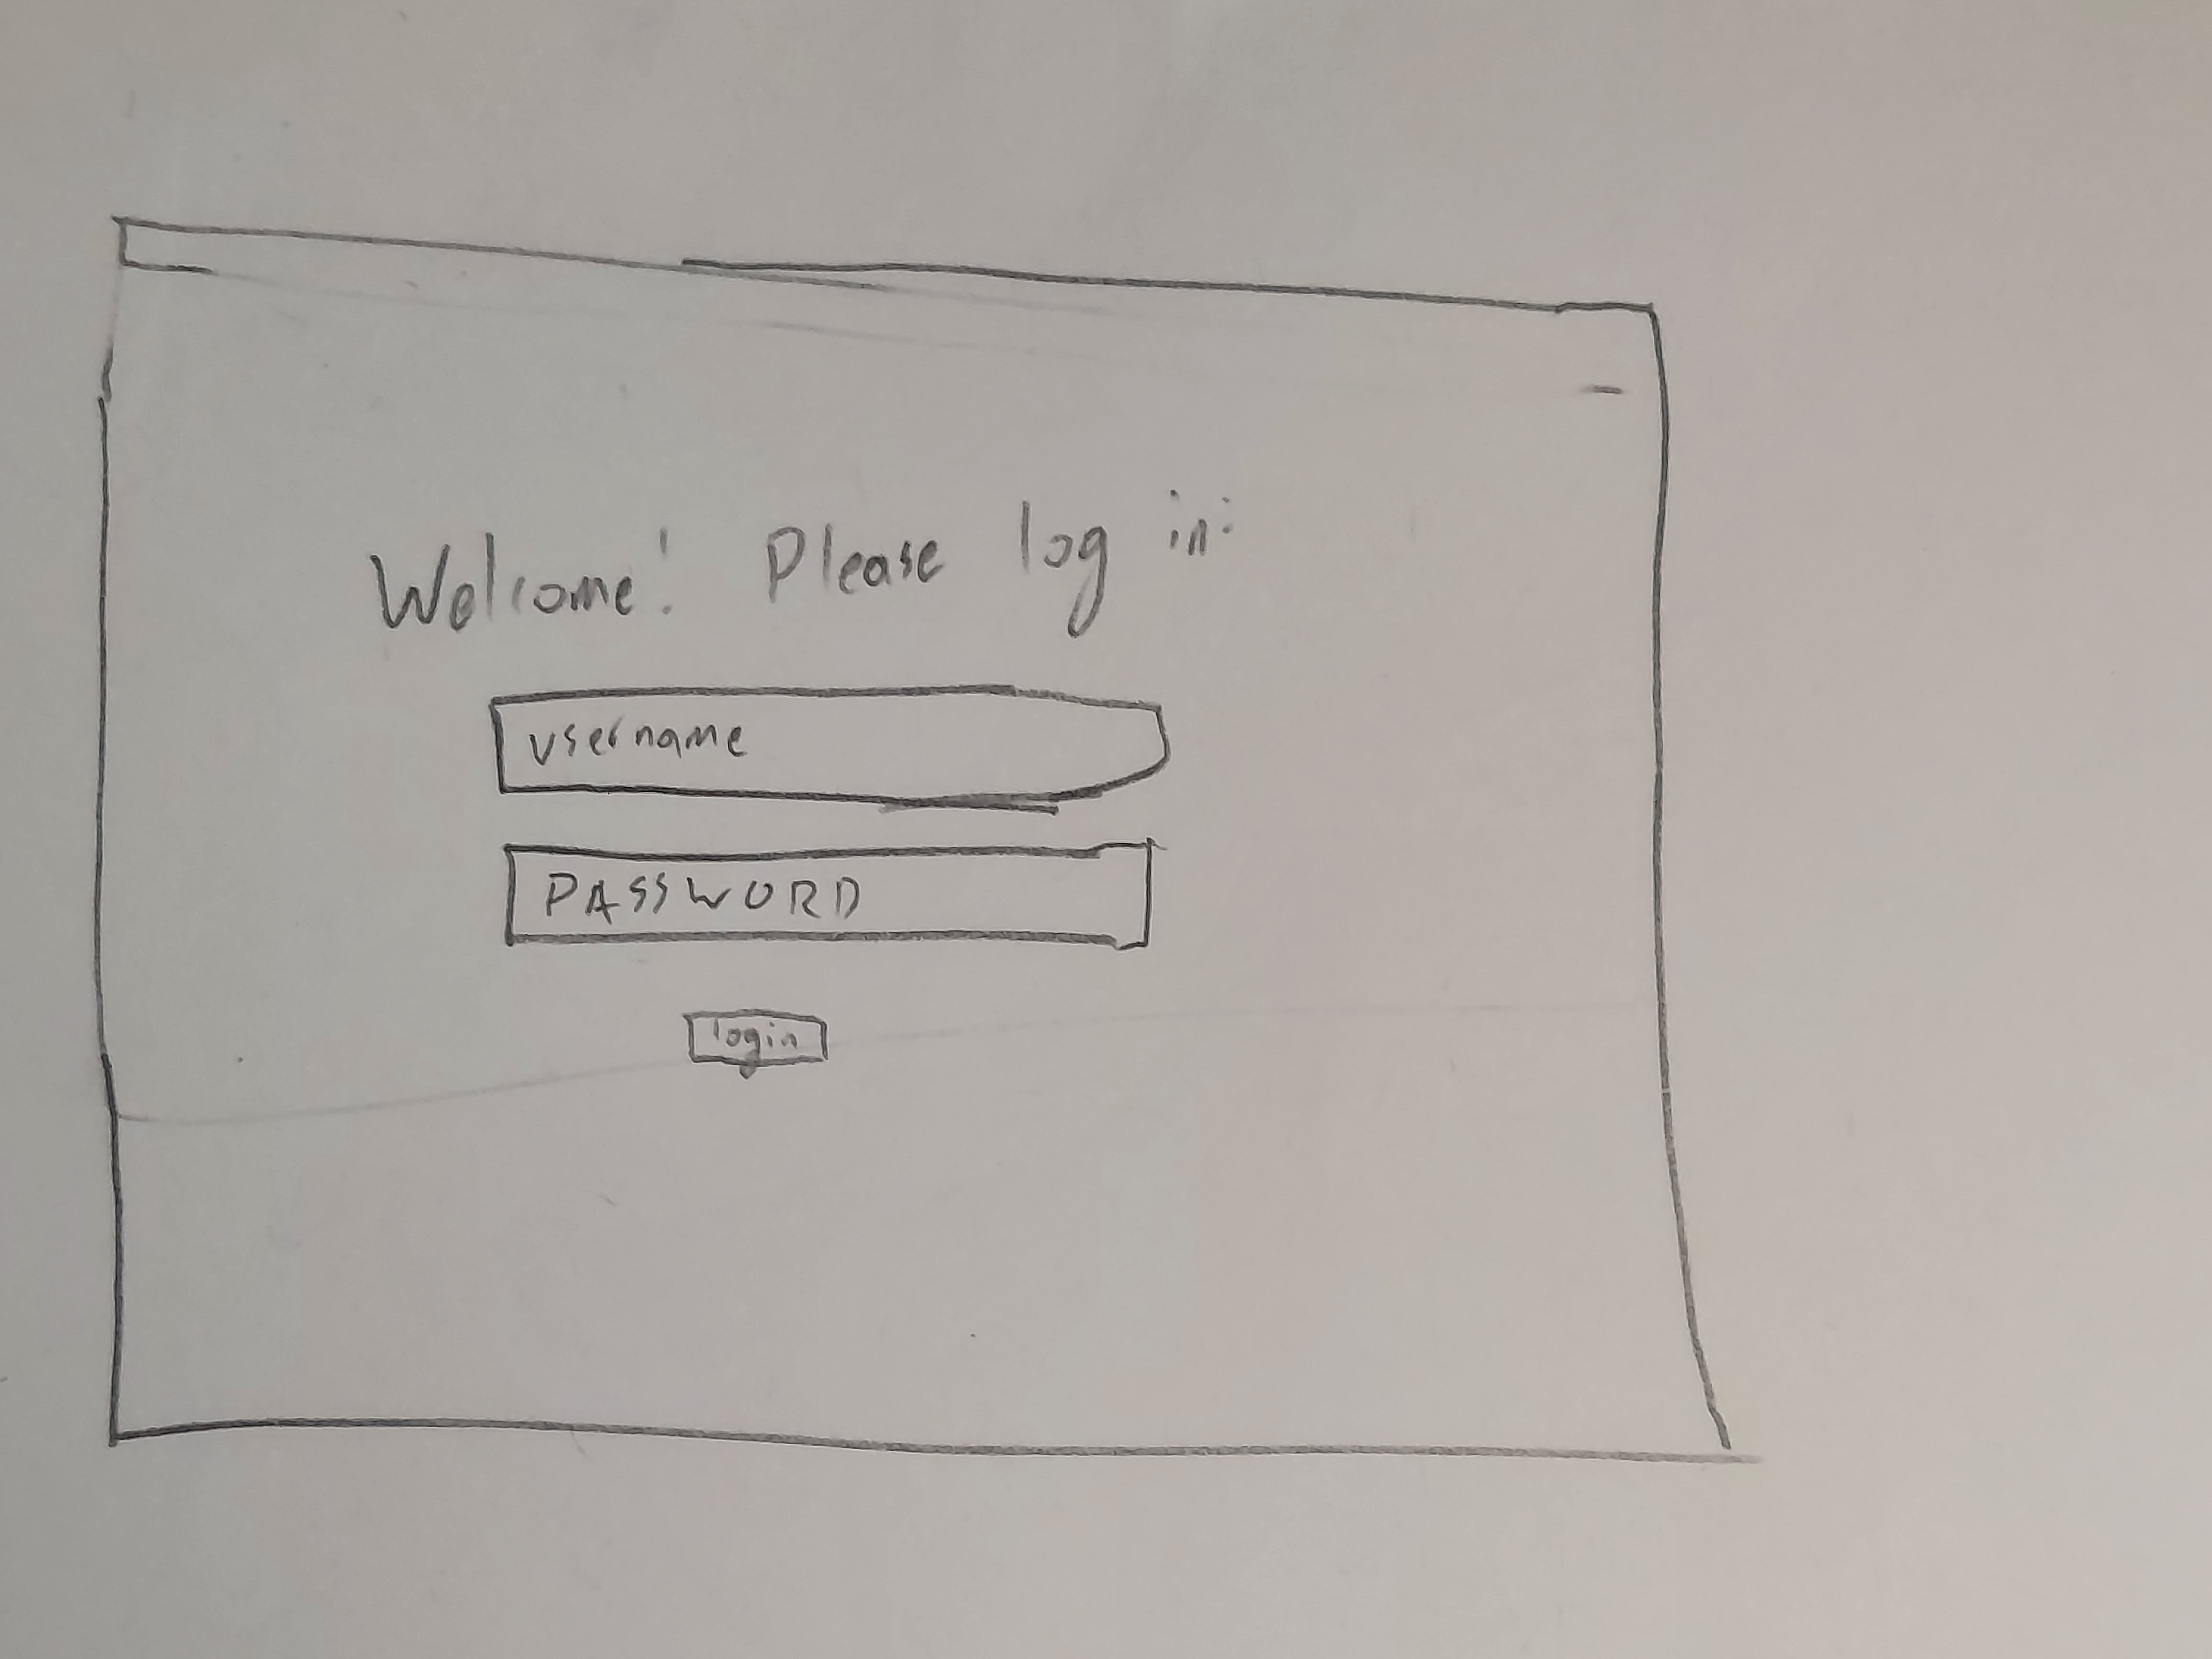 Welcome! Please log in:
username
PASSWORD
login